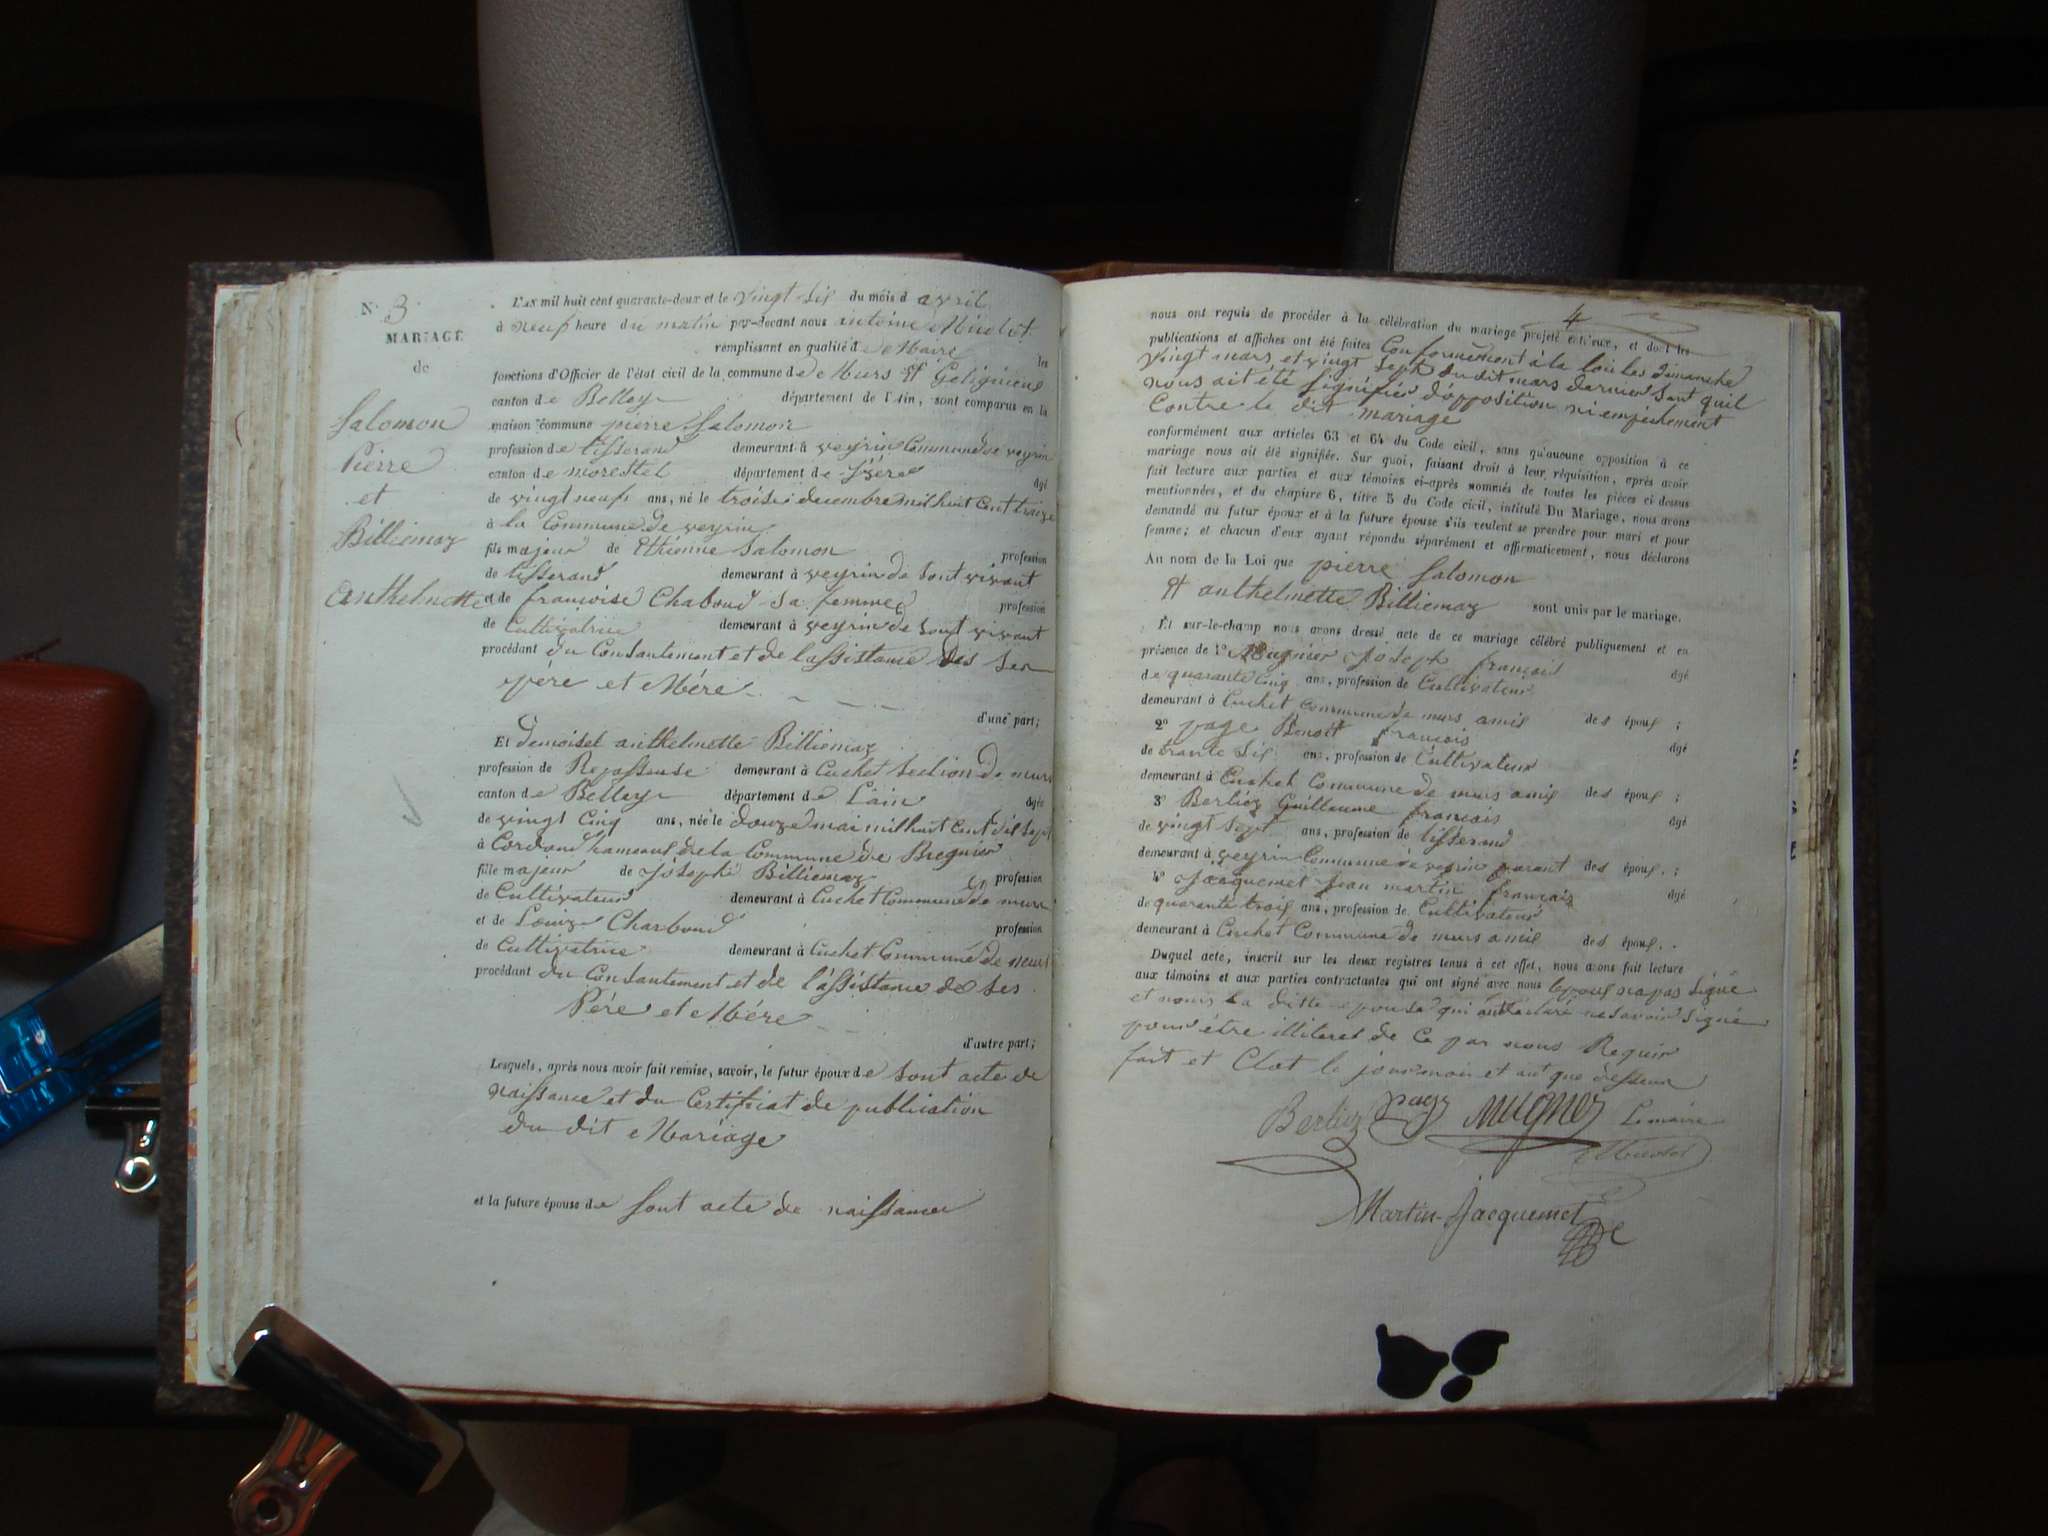 N° 3
MARIAGE
de
Salomon
Pierre
et
Billiemaz
anthelmette
L'AN mil huit cent quarante-deux et le vingt Sis du mois d avril
à neuf heure du matin par-devant nous antoine
remplissant en qualité de Maire les
fonctions d'Officier de l'état civil de la commune de Murs et Geligneux
canton de Belley département de l'Ain, sont comparus en la
maison commune pierre Salomon
profession de tisserand demeurant à veyrin Commune de veyrin
canton de morestel département de Isère âgé
de vingt neuf ans, né le trois decembre mil huit Cent traize
à la Commune de veyrin
fils majeur de Ethienne Salomon profession
de tisserand demeurant à veyrin de Sont vivant
et de françoise Chaboud Sa femme profession
de Cultivatrice demeurant à veyrin de Sont vivant
procédant du Consantement et de lassistance des Ses
père et Mére
d'une part;
Et demoisel anthelmette Billiemaz
profession de Repasseuse demeurant à Cuchet Section de murs
canton de Belley département de Lain âgée
de vingt Cinq ans, née le douze mai mil huit Cent dis Sept
à Cordond hameaux de la Commune de Bregnier
fille majeur de Joseph Billiemaz profession
de Cultivateur demeurant à Cuchet Commune de murs
et de Louize Charboud profession
de Cultivatrice demeurant à Cuchet Commune de murs
procédant du Consantement et de l'assistance de Ses
Père et Mére
d'autre part;
Lesquels, après nous avoir fait remise, savoir, le futur époux de Sont acte de
naissance et du Certificat de publication
du dit Mariage
et la future épouse de Sont acte de naissance
4
nous ont requis de procéder à la célébration du mariage projeté entr'eux, et dont les
publications et affiches ont été faites Conformément à la loi les dimanche
vingt mars et vingt Sept du dit mars dernier Sant quil
nous ait été Signifiés d'opposition ni empéchement
Contre le dit mariage
conformément aux articles 63 et 64 du Code civil, sans qu'aucune opposition à ce
mariage nous ait été signifiée. Sur quoi, faisant droit à leur réquisition, après avoir
fait lecture aux parties et aux témoins ci-après nommés de toutes les pièces ci-dessus
mentionnées, et du chapitre 6, titre 5 du Code civil, intitulé Du Mariage, nous avons
demandé au futur époux et à la future épouse s'ils veulent se prendre pour mari et pour
femme; et chacun d'eux ayant répondu séparément et affirmativement, nous déclarons
Au nom de la Loi que pierre Salomon
et anthelmette Billiemaz sont unis par le mariage.
Et sur-le-champ nous avons dressé acte de ce mariage célébré publiquement et en
présence de 1° Mugnier Joseph françois âgé
de quarante Cinq ans, profession de Cultivateur
demeurant à Cuchet Commune de murs amis des époux;
2° page Benoit françois âgé
de trante Sis ans, profession de Cultivateur
demeurant à Cuchet Commune de murs amis des époux;
3° Berlioz Guillaume françois âgé
de vingt Sept ans, profession de tisserand
demeurant à veyrin Commune de veyrin parant des époux;
4° Jacquemet Jean martin françois âgé
de quarante trois ans, profession de Cultivateur
demeurant à Cuchet Commune de murs amis des époux.
Duquel acte, inscrit sur les deux registres tenus à cet effet, nous avons fait lecture
aux témoins et aux parties contractantes qui ont signé avec nous lepoux na pas Signé
et nous la ditte epouse qui ont declaré ne Savoir Signé
pour étre illiteret de Ce par nous Requir
fait et Clot le jour mois et ant que dessur
Berlioz page Mugnier Le maire
Martin Jacquemet